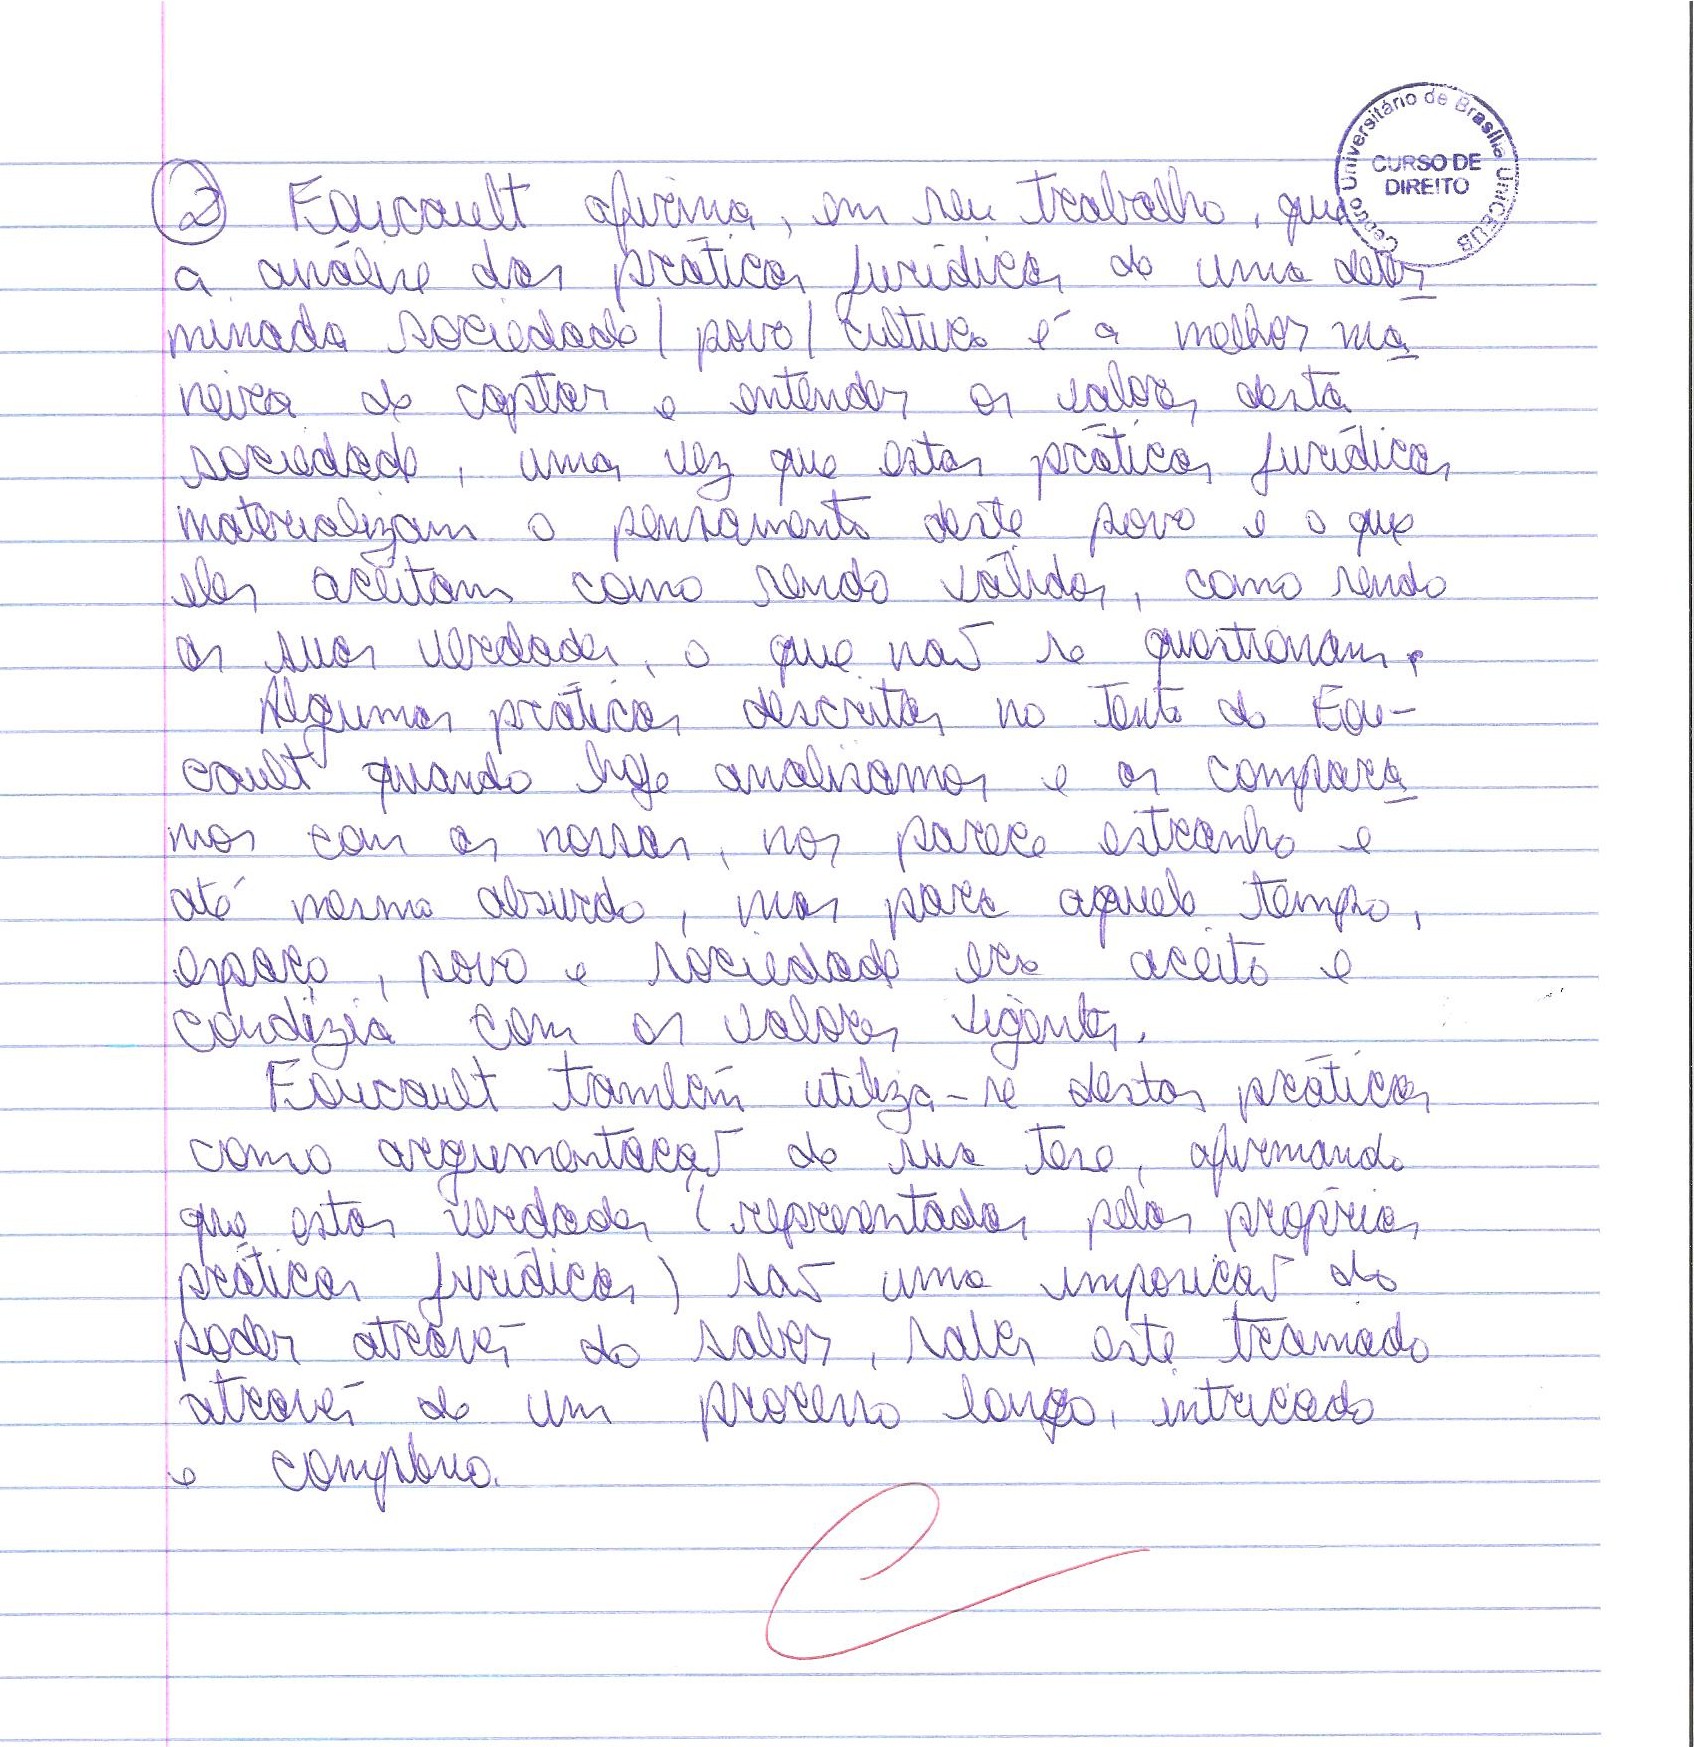 Centro Universitário de Brasília UniCEUB
CURSO DE
DIREITO
2 Foucault afirma, em seu trabalho, que
a análise das práticas jurídicas de uma deter
minada sociedade/povo/cultura é a melhor ma
neira de captar e entender os valores desta
sociedade, uma vez que estas práticas jurídicas
materializam o pensamento deste povo e o que
eles aceitam como sendo válidos, como sendo
as suas verdades, o que não se questionam.
Algumas práticas descritas no texto de Fou-
cault quando hoje analisamos e as compara
mos com as nossas, nos parece estranho e
até mesmo absurdo, mas para aquele tempo,
espaço, povo e sociedade era aceito e
condizia com os valores vigentes.
Foucault também utiliza-se destas práticas
como argumentação de sua tese, afirmando
que estas verdades (representadas pelas próprias
práticas jurídicas) são uma imposição do
poder através do saber, saber este tramado
através de um processo longo, intricado
e complexo.